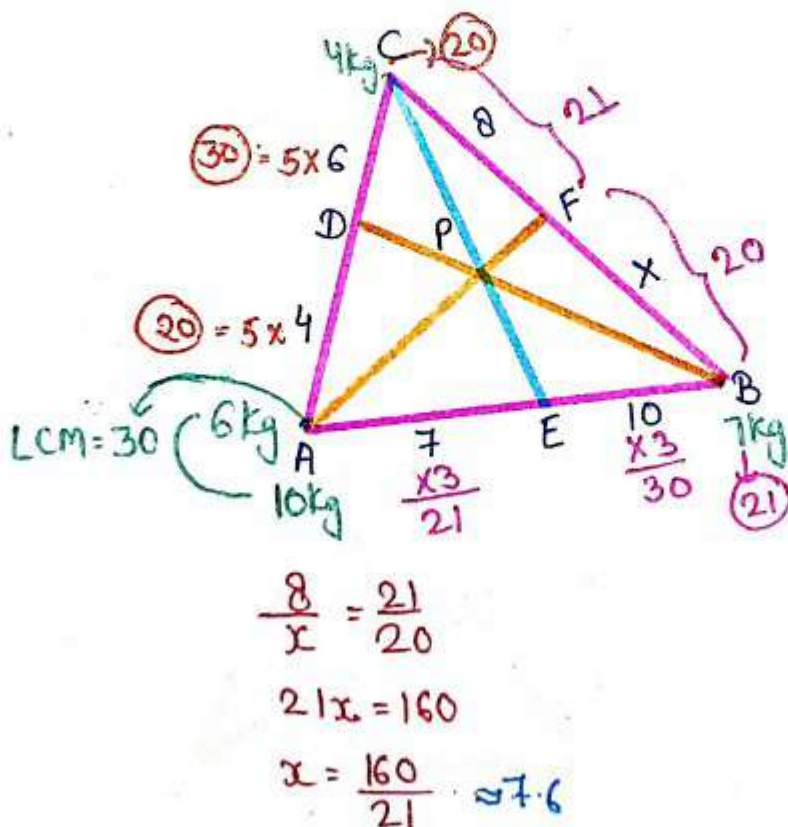 C → 20
4kg
8
21
30 = 5x6
D
P
F
X
20
20 = 5x4
LCM = 30
6kg
A
10kg
7
x3
21
E
10
x3
30
B
7kg
21
8/x = 21/20
21x = 160
x = 160/21 ≈ 7.6